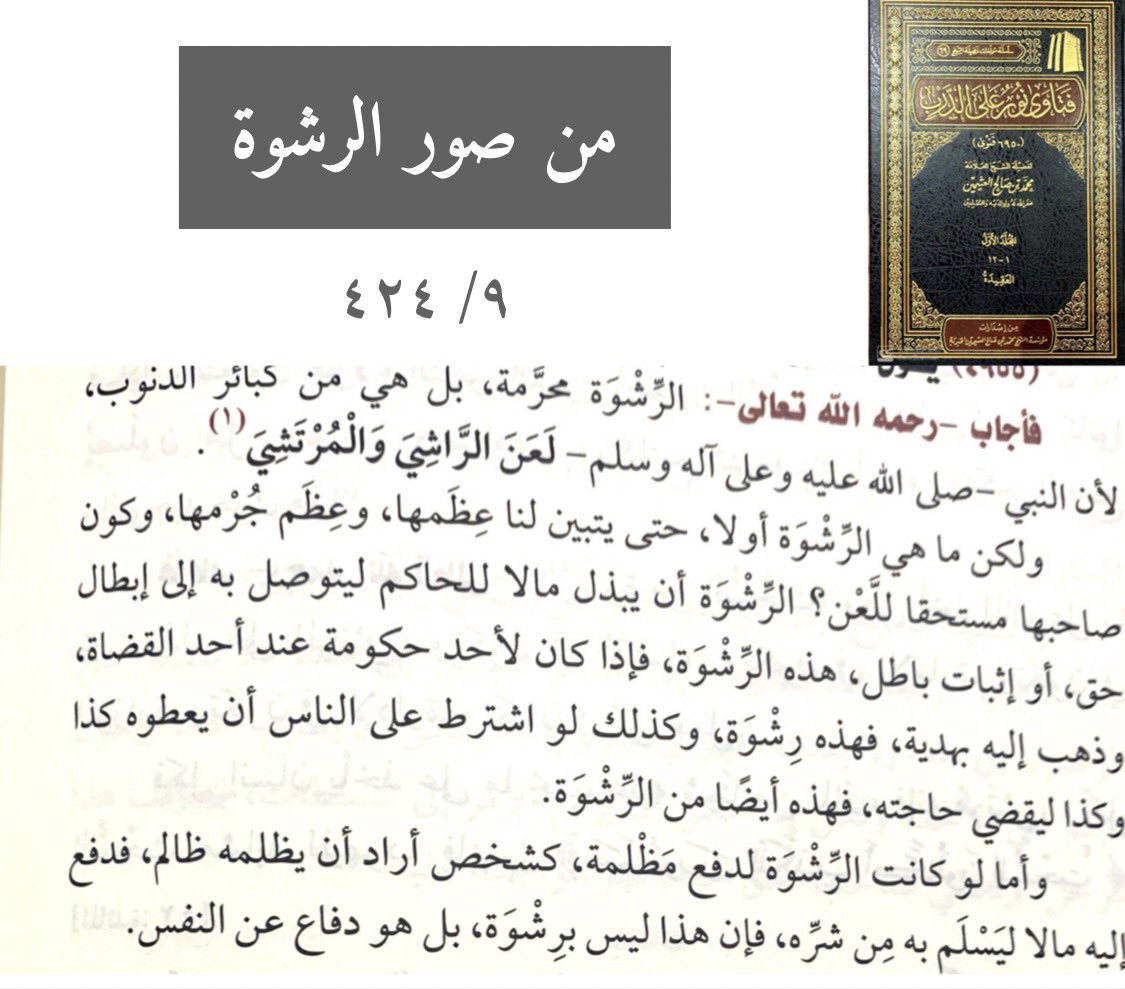 سلسلة مؤلفات فضيلة الشيخ (٦٩)
فتاوى نور على الدرب
(٦٩٥٠ فتوى)
لفضيلة الشيخ العلامة
محمد بن صالح العثيمين
غفر الله له ولوالديه وللمسلمين
المجلد الأول
١-١٢
العقيدة
من إصدارات
مؤسسة الشيخ محمد بن صالح العثيمين الخيرية
من صور الرشوة
٩/ ٤٢٤
فأجاب -رحمه الله تعالى-: الرِّشْوَة محرَّمة، بل هي من كبائر الذنوب،
لأن النبي -صلى الله عليه وعلى آله وسلم- لَعَنَ الرَّاشِيَ وَالْمُرْتَشِيَ(١).
ولكن ما هي الرِّشْوَة أولا، حتى يتبين لنا عِظَمها، وعِظَم جُرْمها، وكون
صاحبها مستحقا للَّعْن؟ الرِّشْوَة أن يبذل مالا للحاكم ليتوصل به إلى إبطال
حق، أو إثبات باطل، هذه الرِّشْوَة، فإذا كان لأحد حكومة عند أحد القضاة،
وذهب إليه بهدية، فهذه رِشْوَة، وكذلك لو اشترط على الناس أن يعطوه كذا
وكذا ليقضي حاجته، فهذه أيضًا من الرِّشْوَة.
وأما لو كانت الرِّشْوَة لدفع مَظْلمة، كشخص أراد أن يظلمه ظالم، فدفع
إليه مالا ليَسْلَم به مِن شرِّه، فإن هذا ليس برِشْوَة، بل هو دفاع عن النفس.